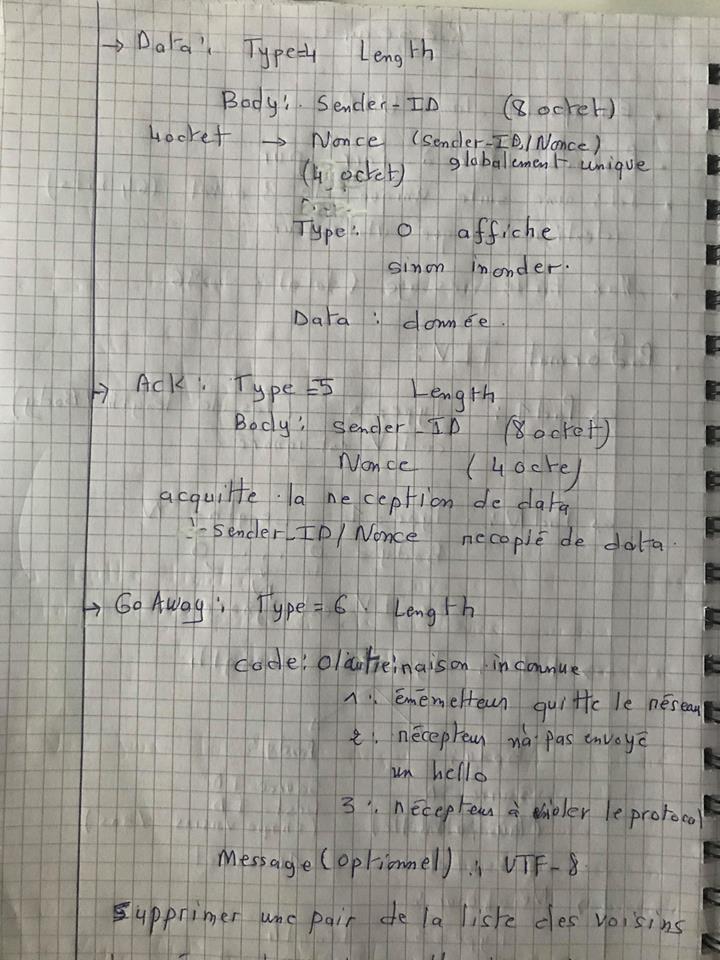 → Data : Type=4 Length
Body : Sender-ID (8 octet)
4octet → Nonce (Sender-ID/Nonce)
globalement unique
(4 octet)
Type : 0 affiche
sinon inonder.
Data : donnée.
→ Ack : Type =5 Length
Body : sender-ID (8 octet)
Nonce (4 octe)
acquitte la reception de data
- sender-ID/Nonce recopié de data.
→ Go Away : Type = 6. Length
code : 0 : autre raison inconnue
1 : émemetteur quitte le réseau
2 : récepteur n'à pas envoyé
un hello
3 : récepteur à violer le protocol
Message (optionnel) : UTF-8.
Supprimer une pair de la liste des voisins